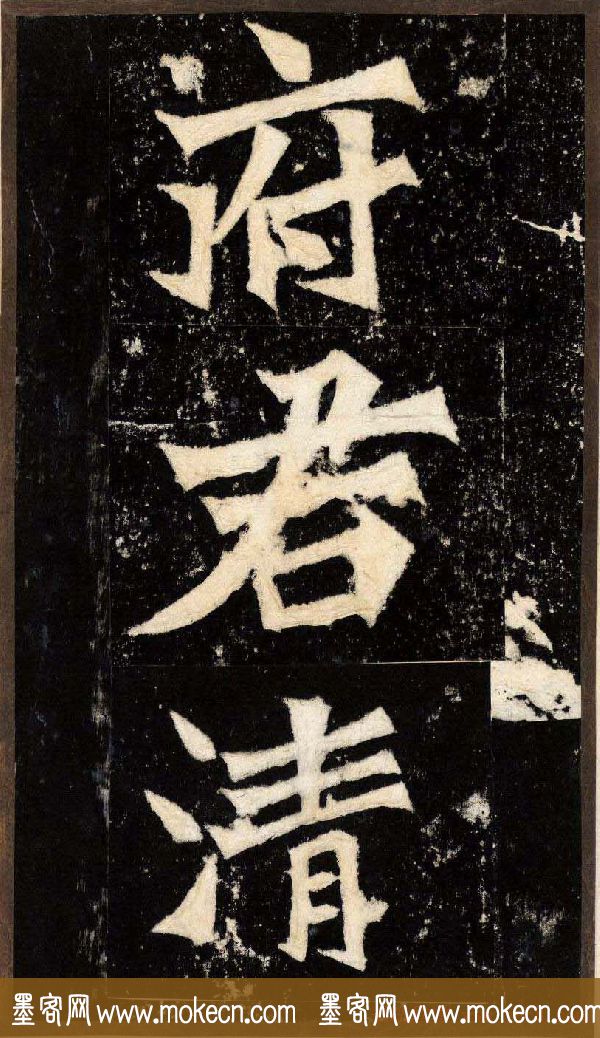 府君清
墨客网 www.mokecn.com 墨客网 www.mokecn.com